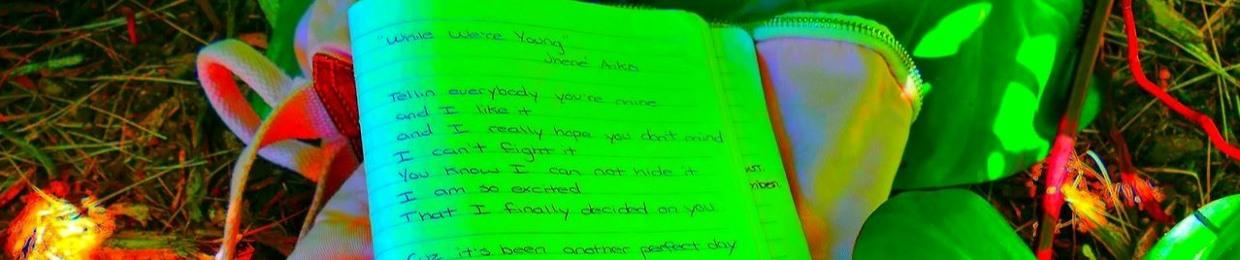 "While We're Young"
Jhené Aiko
Tellin everybody you're mine
and I like it
and I really hope you don't mind
I can't fight it
You know I can not hide it
I am so excited
That I finally decided on you
Cuz it's been another perfect day